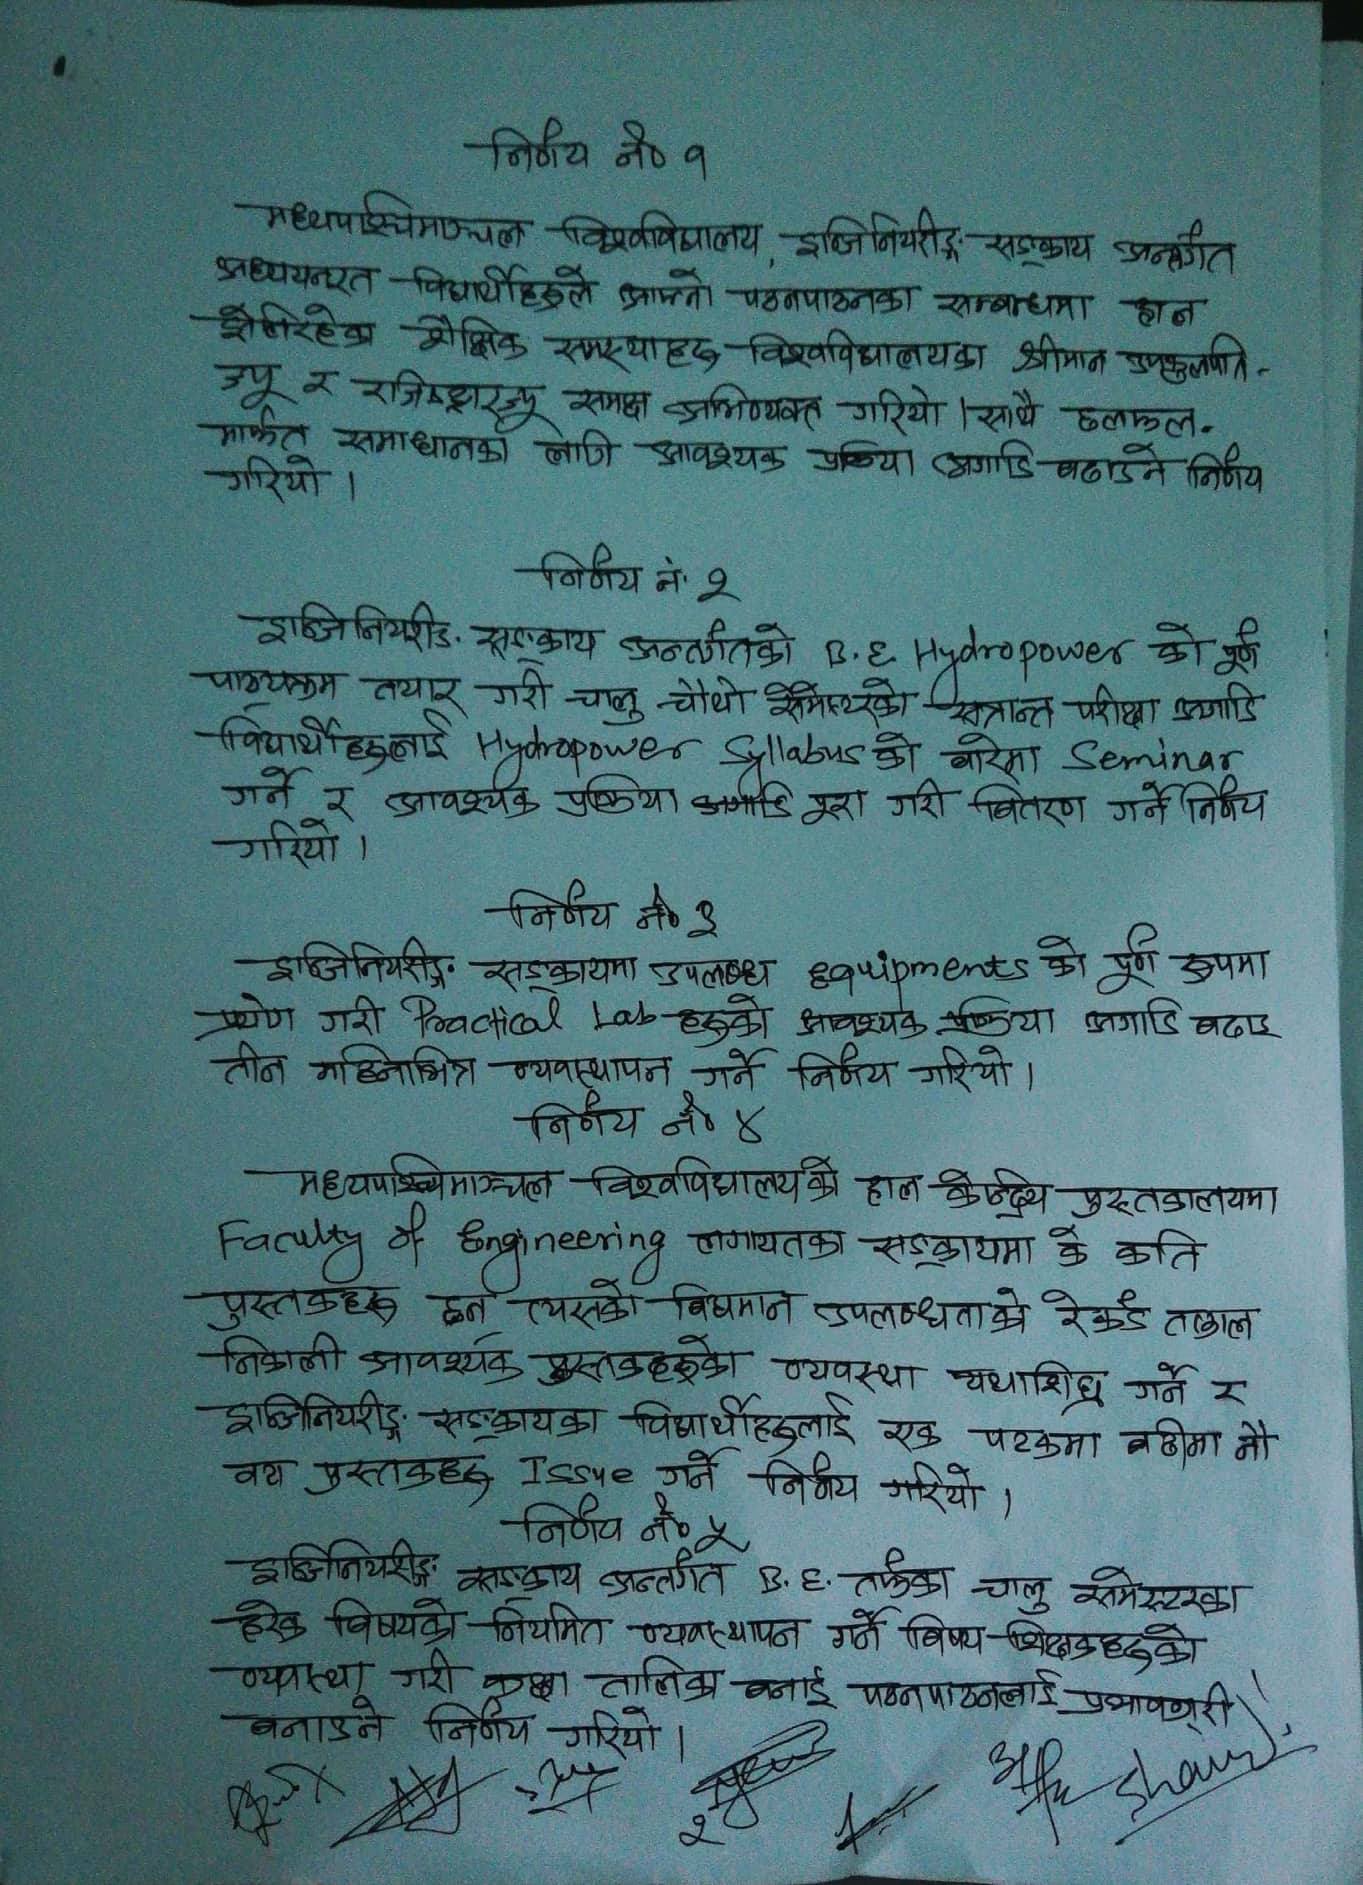 निर्णय नं० १
मध्यपश्चिमाञ्चल विश्वविद्यालय, इन्जिनियरीङ्ग सङ्काय अन्तर्गत
अध्ययनरत विद्यार्थीहरुले आफ्नो पठनपाठनका सम्बन्धमा हाल
झेलिरहेका शैक्षिक समस्याहरु विश्वविद्यालयका श्रीमान उपकुलपति-
ज्यू र रजिष्ट्रारज्यू समक्ष अभिव्यक्त गरियो । साथै छलफल-
मार्फत समाधानका लागि आवश्यक प्रक्रिया अगाडि बढाउने निर्णय
गरियो ।
निर्णय नं. २
इन्जिनियरीङ. सङ्काय अन्तर्गतको B.E Hydropower को पूर्ण
पाठ्यक्रम तयार गरी चालु चौथो सेमेष्टरको सत्रान्त परीक्षा अगाडि
विद्यार्थीहरुलाई Hydropower Syllabus को बारेमा Seminar
गर्ने र आवश्यक प्रक्रिया अगाडि पूरा गरी वितरण गर्ने निर्णय
गरियो ।
निर्णय नं० ३
इन्जिनियरीङ्ग सङ्कायमा उपलब्ध equipments को पूर्ण रुपमा
प्रयोग गरी Practical Lab हरुको आवश्यक प्रक्रिया अगाडि बढाइ
तीन महिनाभित्र व्यवस्थापन गर्ने निर्णय गरियो ।
निर्णय नं० ४
मध्यपश्चिमाञ्चल विश्वविद्यालयको हाल केन्द्रिय पुस्तकालयमा
Faculty of Engineering लगायतका सङ्कायमा के कति
पुस्तकहरु छन् त्यसको विद्यमान उपलब्धताको रेकर्ड तत्काल
निकाली आवश्यक पुस्तकहरुको व्यवस्था यथाशिघ्र गर्ने र
इन्जिनियरीङ्ग सङ्कायका विद्यार्थीहरुलाई एक पटकमा बढीमा नौ
वटा पुस्तकहरु Issue गर्ने निर्णय गरियो ।
निर्णय नं० ५
इन्जिनियरीङ्ग सङ्काय अन्तर्गत B.E. तर्फका चालु सेमेस्टरका
हरेक विषयको नियमित व्यवस्थापन गर्ने विषय शिक्षकहरुको
व्यवस्था गरी कक्षा तालिका बनाई पठनपाठनलाई प्रभावकारी
बनाउने निर्णय गरियो ।